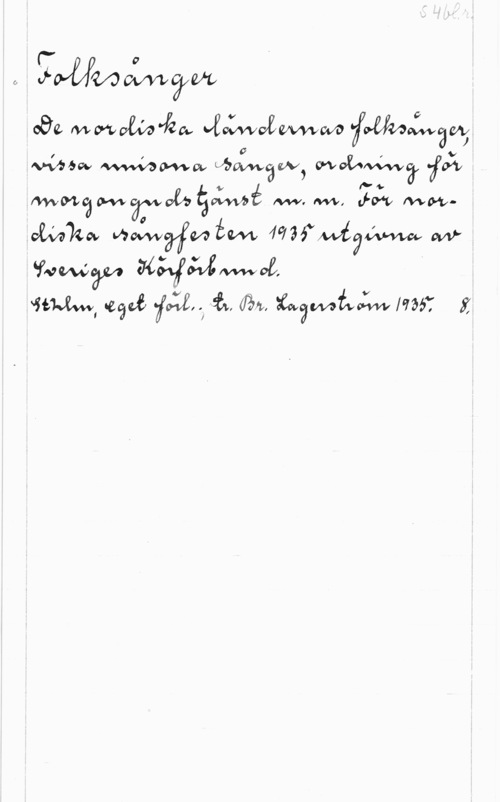 54 bl.
Folksånger
De nordiska ländernas folksånger,
vissa unisona sånger, ordning för
morgongudstjänst m. m. För nor-
diska sångfesten 1935 utgivna av
Sveriges Körförbund.
Sthlm, eget förl.; tr. Br. Lagerström 1935. 8.